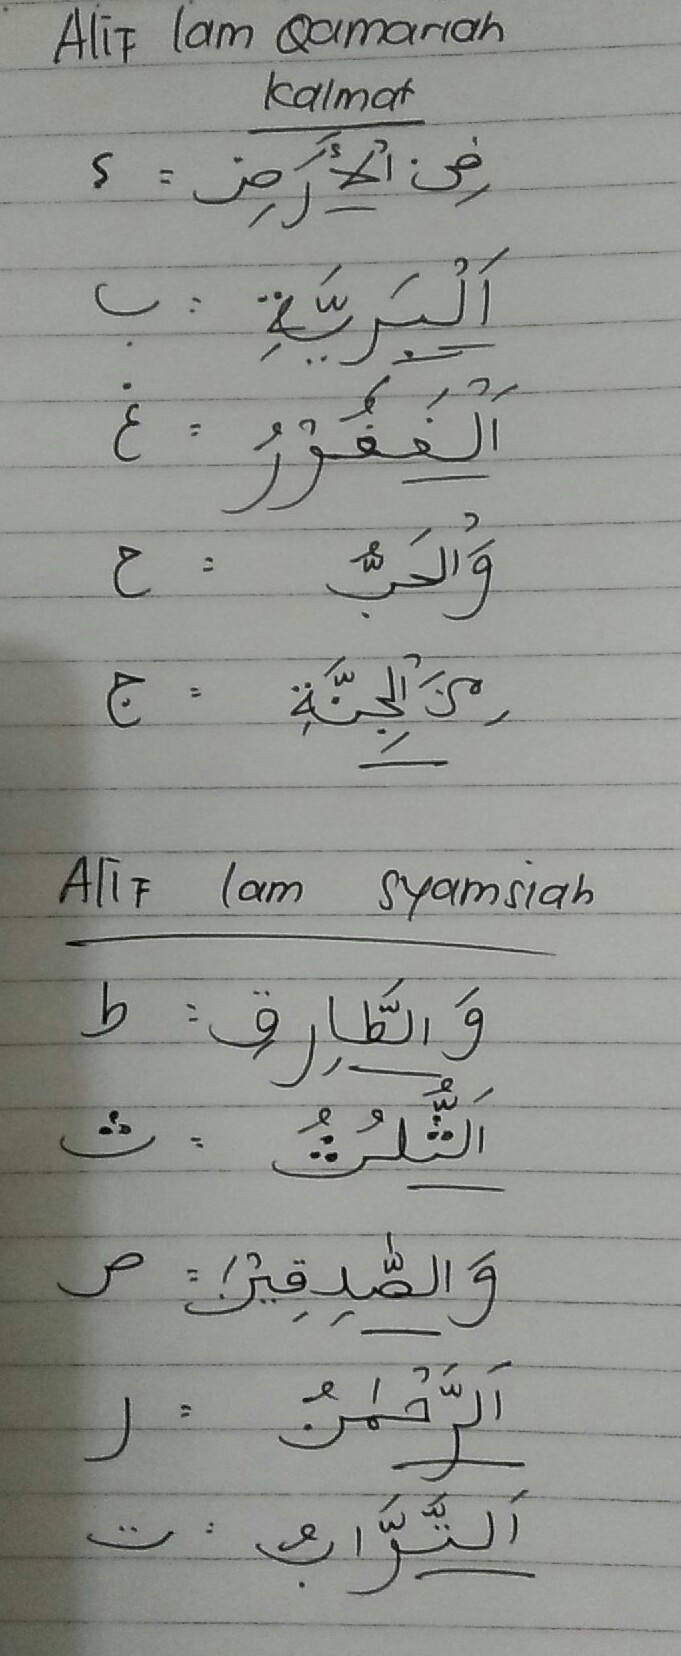 Alif lam Qamariah
Kalmat
فِى الْأَرَضِ = ء
اَلْبَرِيَّةِ = ب
اَلْغَفُوْرُ = غ
وَالْحَبُّ = ح
مِنَ الْجِنَّةِ = ج
Alif lam syamsiah
وَالطَّارِقِ = ط
اَلثُّلُثُ = ث
وَالصّٰدِقِيْنَ = ص
اَلرَّحْمٰنُ = ر
اَلتَّوَّابُ = ت